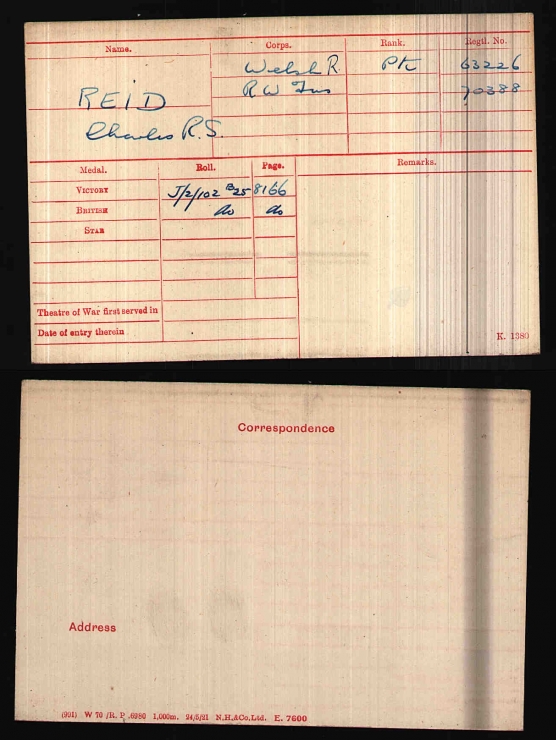 Name. Corps. Rank. Regtl. No.
Welsh R Pte 63226
REID R W Fus 70388
Charles R.S.
Medal. Roll. Page. Remarks.
VICTORY J/2/102 B25 8166
BRITISH do do
STAR
Theatre of War first served in
Date of entry therein
K. 1380
Correspondence
Address
(991) W 70 /R. P. 6980 1,000m. 24/5/21 N.H.&Co,Ltd. E. 7600